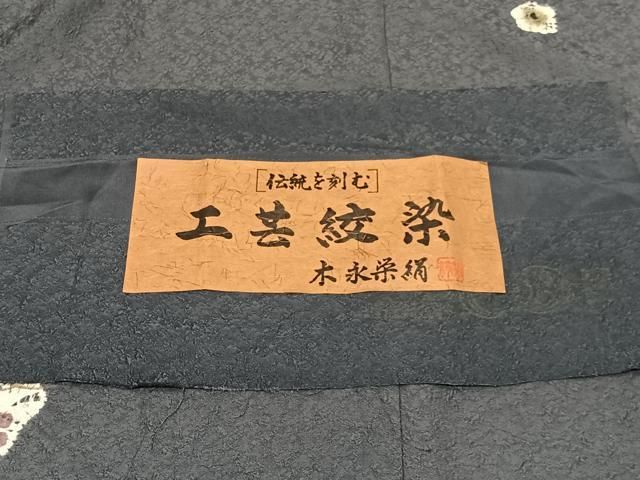 伝統を刻む
工芸絞染
木永栄絹